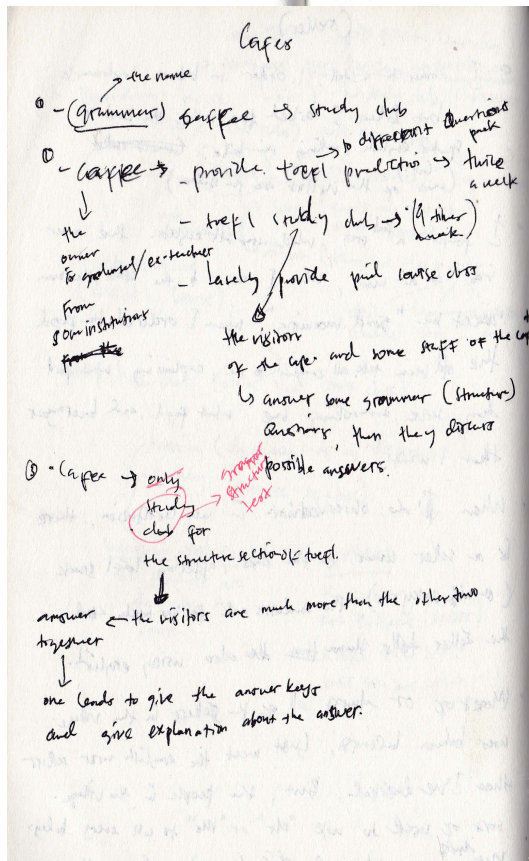 Cafes
→ the name
① - (grammar) caffee → study club
→ 10 different questions
① - caffee → provide toefl prediction → twice
a week
↓
the
owner
is graduated / ex-teacher
From
some institutions
- toefl study club → (4 times
a week)
- Lately provide paid course class
the visitors
of the cafe and some staff of the
↳ answer some grammar (structure)
Questions, then they discuss
possible answers.
③ · Caffee → only
study
club for
→ grammar
structure
test
the structure section of toefl.
↓
answer ← the visitors are much more than the other two
together
↓
one leads to give the answer keys
and give explanation about the answer.